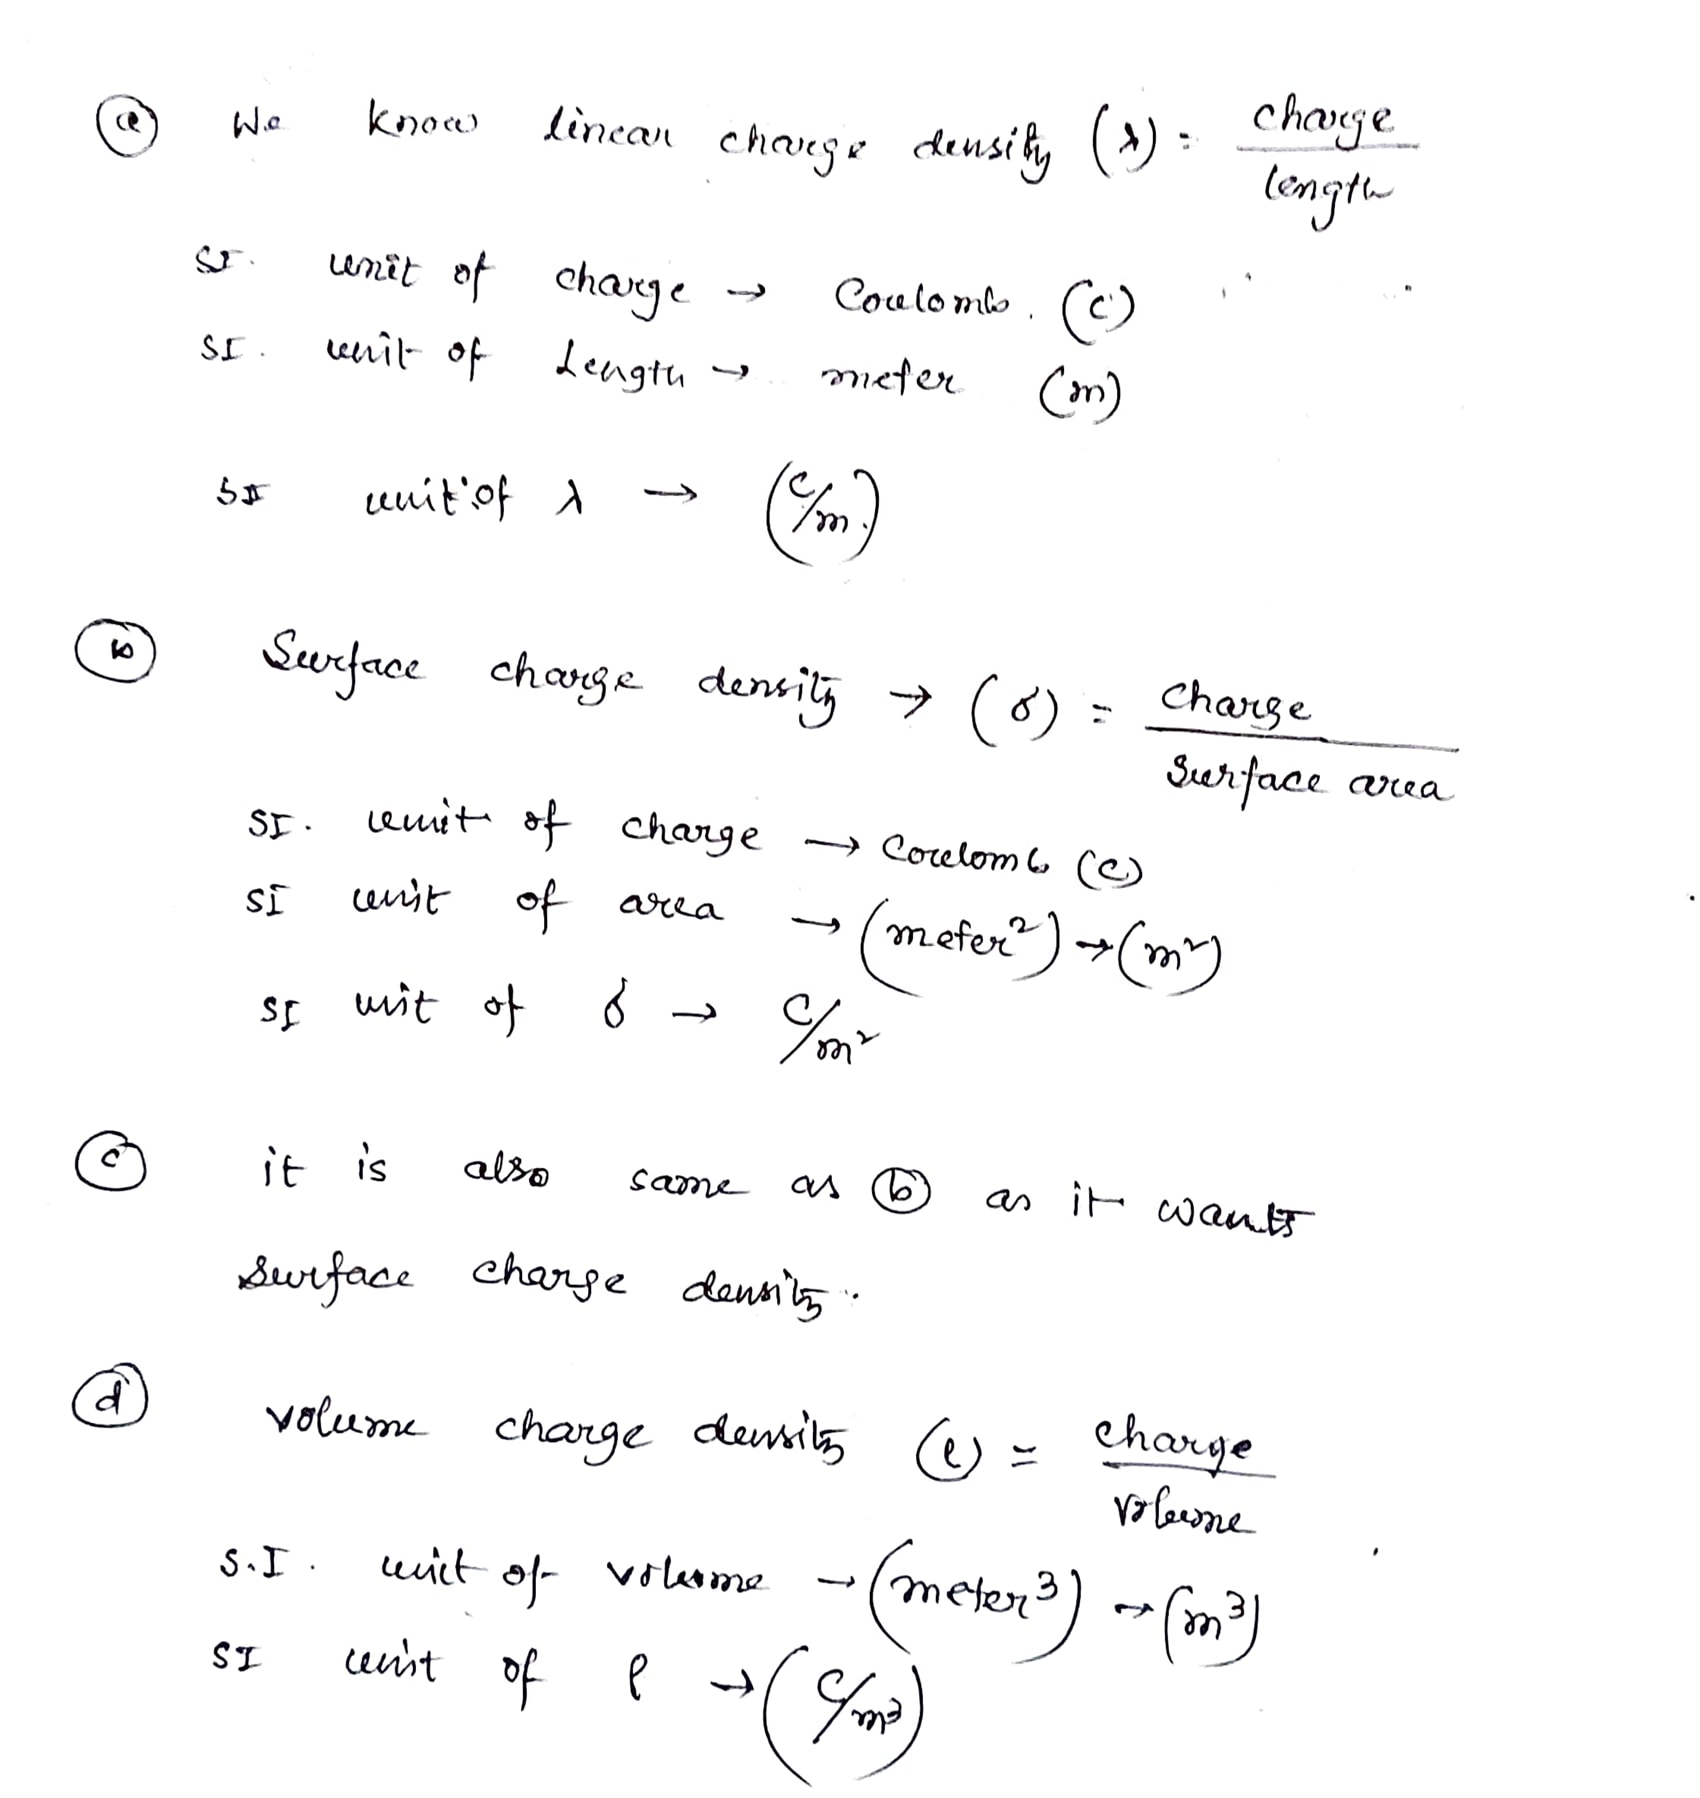 (a) We know linear charge density (λ) = charge / length
SI. unit of charge → Coulomb. (C)
SI. unit of Length → meter (m)
SI unit of λ → (C/m)
(b) Surface charge density → (σ) = Charge / Surface area
SI. unit of charge → Coulomb (C)
SI unit of area → (meter²) → (m²)
SI unit of σ → C/m²
(c) it is also same as (b) as it wants
surface charge density.
(d) volume charge density (ρ) = charge / volume
S.I. unit of volume → (meter³) → (m³)
SI unit of ρ → (C/m³)